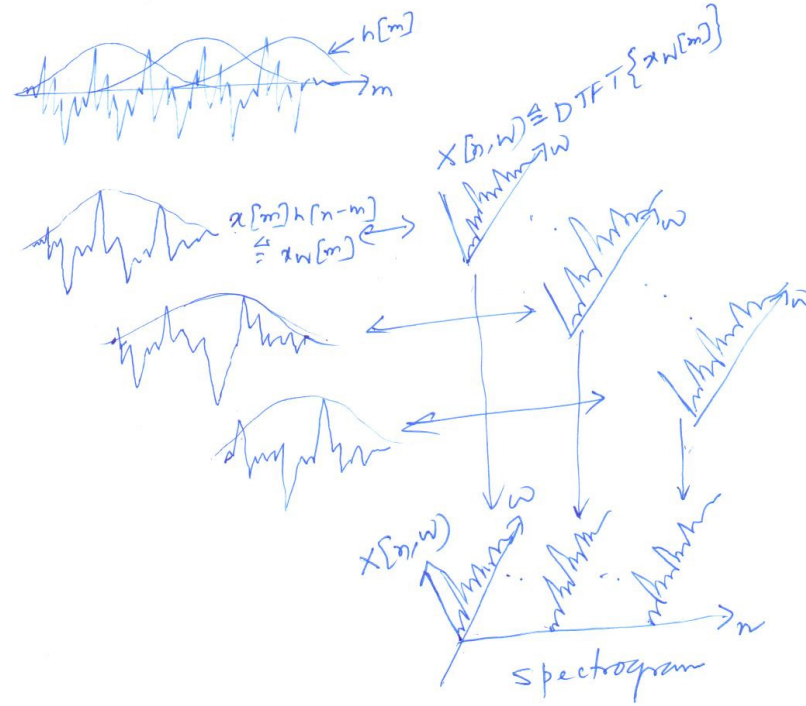 h[m]
m
X[n,w) ≜ DTFT{xw[m]}
w
x[m]h[n-m]
≜ xw[m]
w
w
w
X[n,w)
n
spectrogram